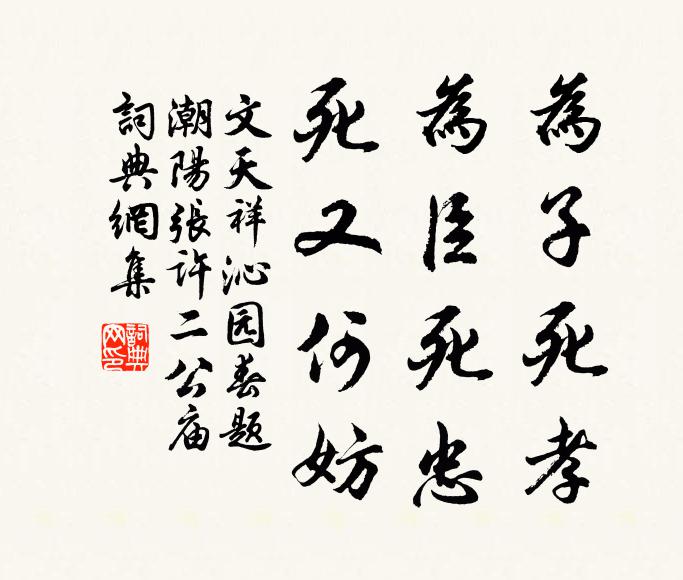 為子死孝
為臣死忠
死又何妨
文天祥沁园春题
潮陽張許二公庙
詞典網集
詞典
网印